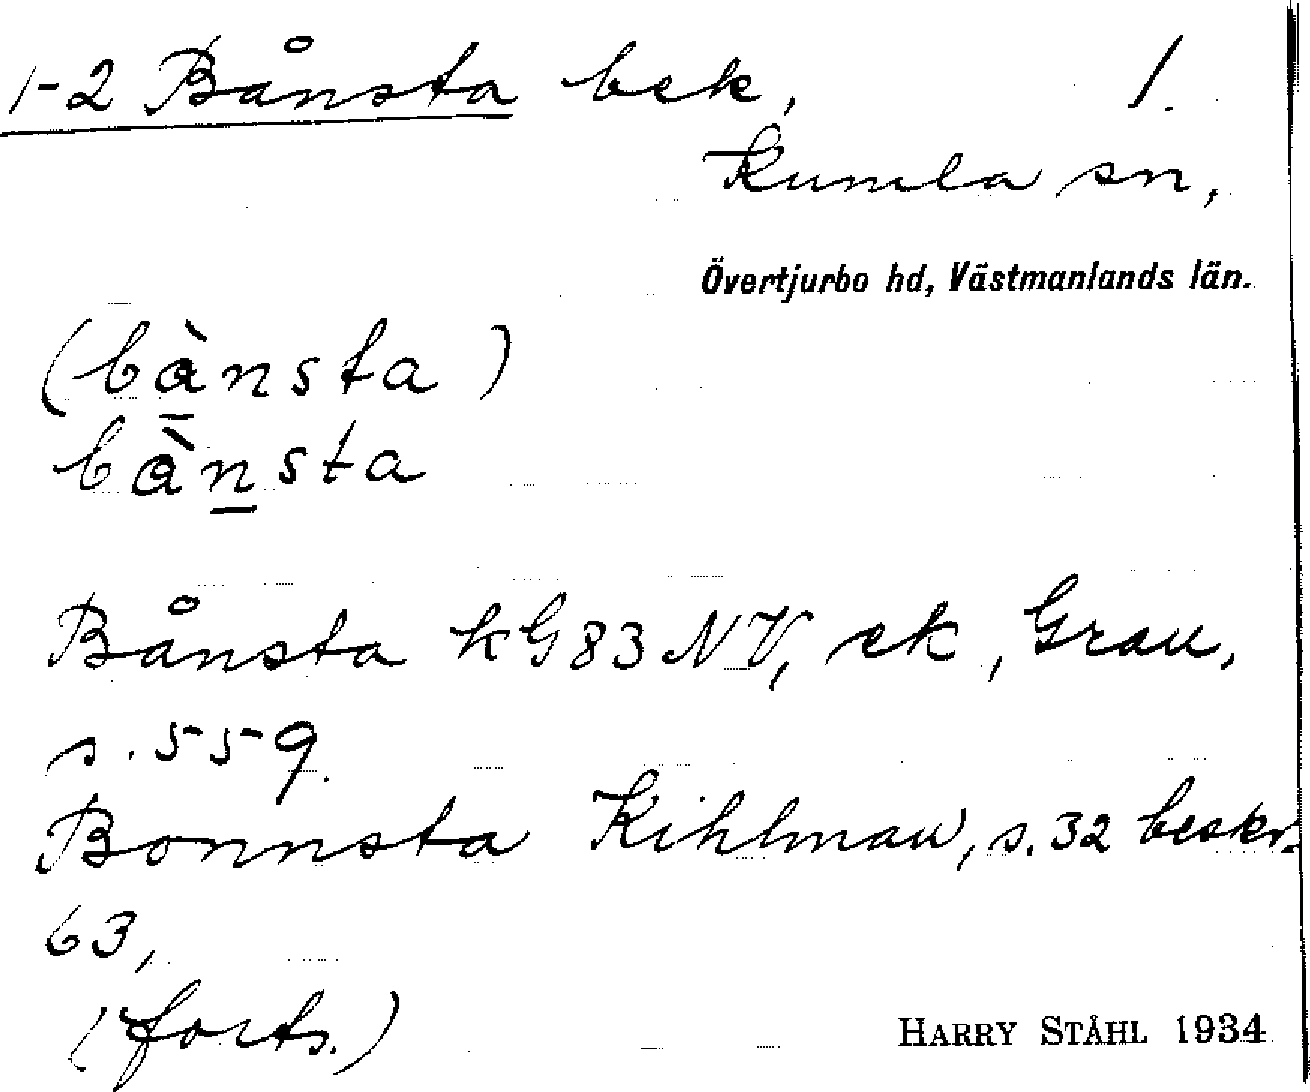 1-2 Bånsta bek, 1.
Kumla sn,
Övertjurbo hd, Västmanlands län.
(bànsta)
bànsta
Bånsta kG83NV, ek, Grau,
s. 559.
Bonnsta Kihlmau, s. 32 beskr.
63,
(forts.)
HARRY STÅHL 1934